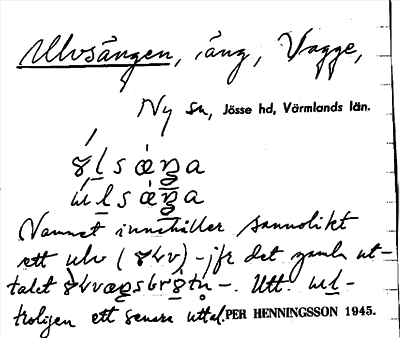 Ulvsängen, äng, Vagge,
Ny sn, Jösse hd, Värmlands län.
Namnet innehåller sannolikt
ett ulv ( ) - jfr det gamla ut-
talet - Utt. ul-
troligen ett senare uttal. PER HENNINGSSON 1945.